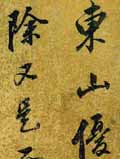 東山優
除又是